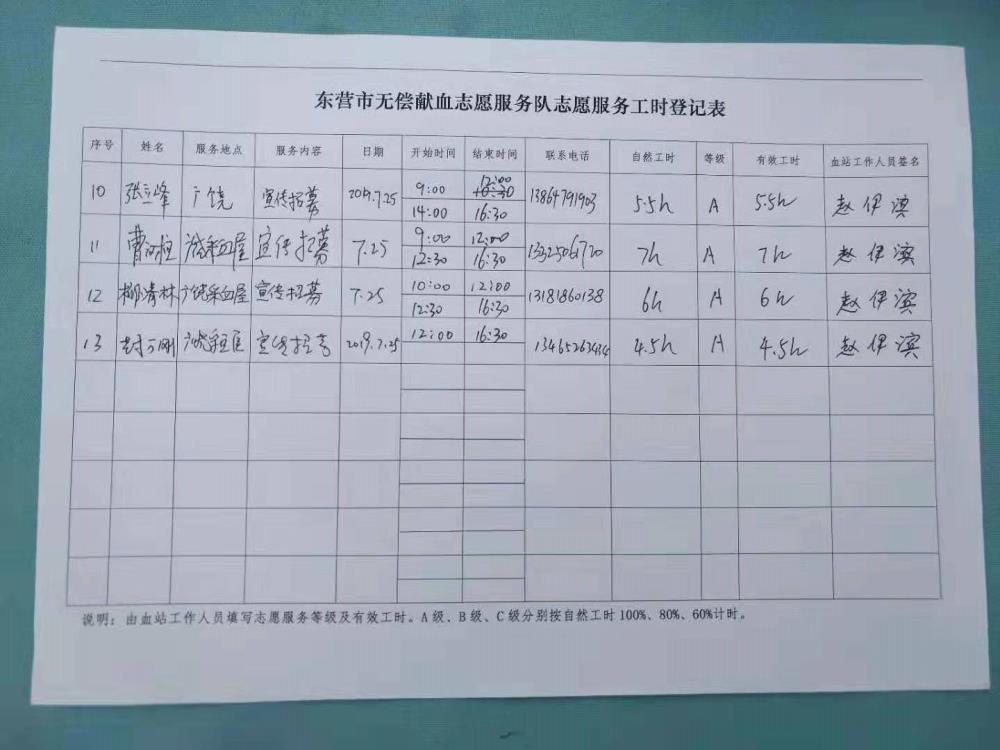 东营市无偿献血志愿服务队志愿服务工时登记表
序号 姓名 服务地点 服务内容 日期 开始时间 结束时间 联系电话 自然工时 等级 有效工时 血站工作人员签名
10 张立峰 广饶 宣传招募 2019.7.25 9:00 12:00 13864791903 5.5h A 5.5h 赵伊滨
14:00 16:30
11 曹 采血屋 宣传招募 7.25 9:00 12:00 13325066720 7h A 7h 赵伊滨
12:30 16:30
12 柳清林 广饶采血屋 宣传招募 7.25 10:00 12:00 13181860138 6h A 6h 赵伊滨
12:30 16:30
13 刚 宣传招募 2019.7.25 12:00 16:30 4.5h A 4.5h 赵伊滨
说明：由血站工作人员填写志愿服务等级及有效工时。A级、B级、C级分别按自然工时100%、80%、60%计时。